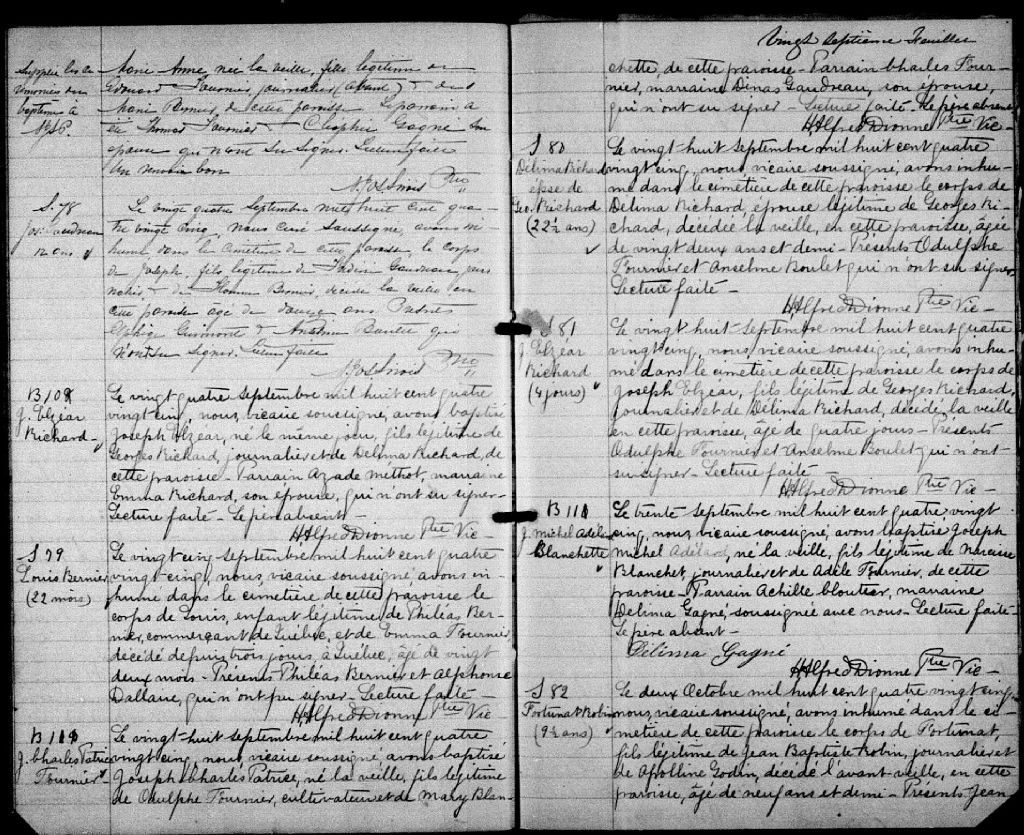 Suppléé les cé-
rémonies du
baptême à
Marie Anne, née la veille, fille légitime de
Edouard Fournier journalier (absent) & de
Marie Bernier de cette paroisse. Le parrain a
été Thomas Fournier - Cléophie Gagné son
épouse qui n'ont su signer. Lecture faite
Un renvoi bon
Ptre
S. 78
Jos. Gaudreau
12 ans
Le vingt quatre Septembre mil huit cent qua-
tre vingt cinq, nous curé soussigné, avons in-
humé dans le cimetière de cette paroisse, le corps
de Joseph, fils légitime de Gaudreau, jour-
nalier & de Bernier, décédé la veille en
cette paroisse âgé de douze ans Présents
Guimont & Anselme Boulet qui
n'ont su signer. Lecture faite
Ptre
B 109
J. Elzéar
Richard
Le vingt quatre septembre mil huit cent quatre
vingt cinq, nous, vicaire soussigné, avons baptisé
Joseph Elzéar, né le même jour, fils légitime de
Georges Richard, journalier et de Délima Richard, de
cette paroisse - Parrain Azade Méthot, marraine
Emma Richard, son épouse, qui n'ont su signer -
Lecture faite - Le père absent -
HAlfred Dionne Ptre Vic -
S 79
Louis Bernier
(22 mois)
Le vingt cinq septembre mil huit cent quatre
vingt cinq, nous, vicaire soussigné, avons in-
humé dans le cimetière de cette paroisse le
corps de Louis, enfant légitime de Philéas Ber-
nier, commerçant de Québec, et de Emma Fournier
décédé depuis trois jours, à Québec, âgé de vingt
deux mois - Présents Philéas Bernier et Alphonse
Dallaire, qui n'ont pu signer - Lecture faite -
HAlfred Dionne Ptre Vic
B 110
J. Charles Patrice
Fournier
Le vingt-huit septembre mil huit cent quatre
vingt cinq, nous, vicaire soussigné, avons baptisé
Joseph Charles Patrice, né la veille, fils légitime
de Odulphe Fournier, cultivateur et de Mary Blan-
Vingt septième Feuillet
chette, de cette paroisse - Parrain Charles Four-
nier, marraine Dinas Gaudreau, son épouse,
qui n'ont su signer - Lecture faite - Le père absent
HAlfred Dionne Ptre Vic -
S 80
Délima Richard
épse de
Geo. Richard
(22½ ans)
Le vingt-huit septembre mil huit cent quatre
vingt cinq, nous, vicaire soussigné, avons inhu-
mé dans le cimetière de cette paroisse le corps de
Délima Richard, épouse légitime de Georges Ri-
chard, décédée la veille, en cette paroisse, âgée
de vingt deux ans et demi - Présents Odulphe
Fournier et Anselme Boulet qui n'ont su signer
Lecture faite -
HAlfred Dionne Ptre Vic -
S 81
J. Elzéar
Richard
(4 jours)
Le vingt huit septembre mil huit cent quatre
vingt cinq, nous, vicaire soussigné, avons inhu-
mé dans le cimetière de cette paroisse le corps de
Joseph Elzéar, fils légitime de Georges Richard,
journalier et de Délima Richard, décédé la veille
en cette paroisse, âgé de quatre jours - Présents
Odulphe Fournier et Anselme Boulet qui n'ont
su signer - Lecture faite -
HAlfred Dionne Ptre Vic -
B 111
J. Michel Adélard
Blanchette
Le trente septembre mil huit cent quatre vingt
cinq, nous, vicaire soussigné, avons baptisé Joseph
Michel Adélard, né la veille, fils légitime de Narcisse
Blanchet, journalier et de Adèle Fournier, de cette
paroisse - Parrain Achille Cloutier, marraine
Délima Gagné, soussignée avec nous - Lecture faite -
Le père absent -
Délima Gagné
HAlfred Dionne Ptre Vic -
S 82
Fortunat Robin
(9½ ans)
Le deux Octobre mil huit cent quatre vingt cinq,
nous, vicaire soussigné, avons inhumé dans le ci-
metière de cette paroisse le corps de Fortunat,
fils légitime de Jean Baptiste Robin, journalier et
de Apolline Godin, décédé l'avant-veille, en cette
paroisse, âgé de neuf ans et demi - Présents Jean